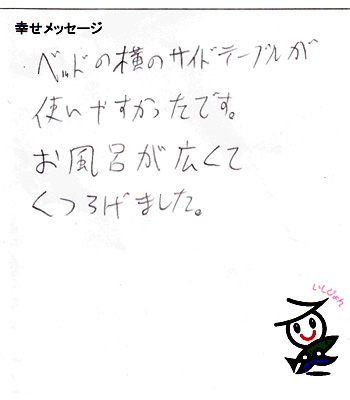 幸せメッセージ
ベッドの横のサイドテーブルが
使いやすかったです。
お風呂が広くて
くつろげました。
いしぴょん